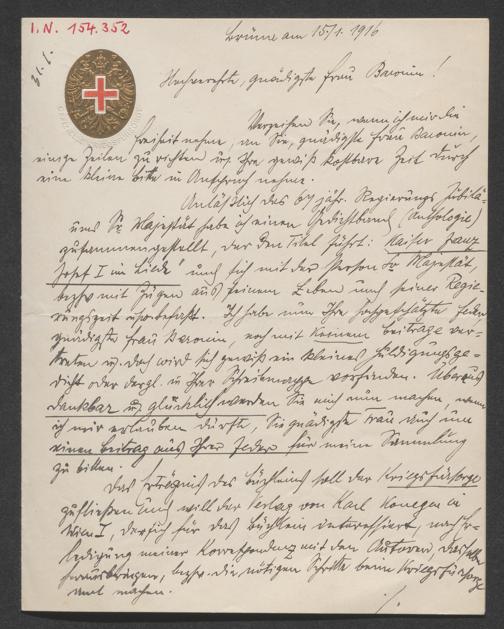 I.N. 154.352
31.1.
Brünn am 15/1. 1916
Hochverehrte, gnädigste Frau Baronin!
Verzeihen Sie, wenn ich mir die
Freiheit nehme, an Sie, gnädigste Frau Baronin,
einige Zeilen zu richten u. Ihre gewiß kostbare Zeit durch
eine kleine Bitte in Anspruch nehme.
Anläßlich des 67 jähr. Regierungs Jubilä-
ums Sr Majestät habe ich einen Gedichtband (Anthologie)
zusammengestellt, der den Titel führt: Kaiser Franz
Josef I im Liede" und sich mit der Person Sr Majestät,
bezhw mit Zügen aus seinem Leben und seiner Regie-
rungszeit befaßt. Ich habe nun Ihre hochgeschätzte Feder
gnädigste Frau Baronin, noch mit keinem Beitrage ver-
treten u. doch wird sich gewiß ein kleines Huldigungsge-
dicht oder dergl. in Ihrer Schreibmappe vorfinden. Überaus
dankbar u. glücklich werden Sie mich nun machen, wenn
ich mir erlauben dürfte, Sie gnädigste Frau auch um
einen Beitrag aus Ihrer Feder für meine Sammlung
zu bitten.
Das Erträgnis des Büchleins soll der Kriegsfürsorge
zufließen und will der Verlag von Karl Konegen in
Wien I, der sich für das Büchlein interessiert, nach Er-
ledigung meiner Korrespondenz mit den Autoren, dasselbe
herausbringen, bezhw. die nötigen Schritte beim Kriegsfürsorge
amt machen.
./.